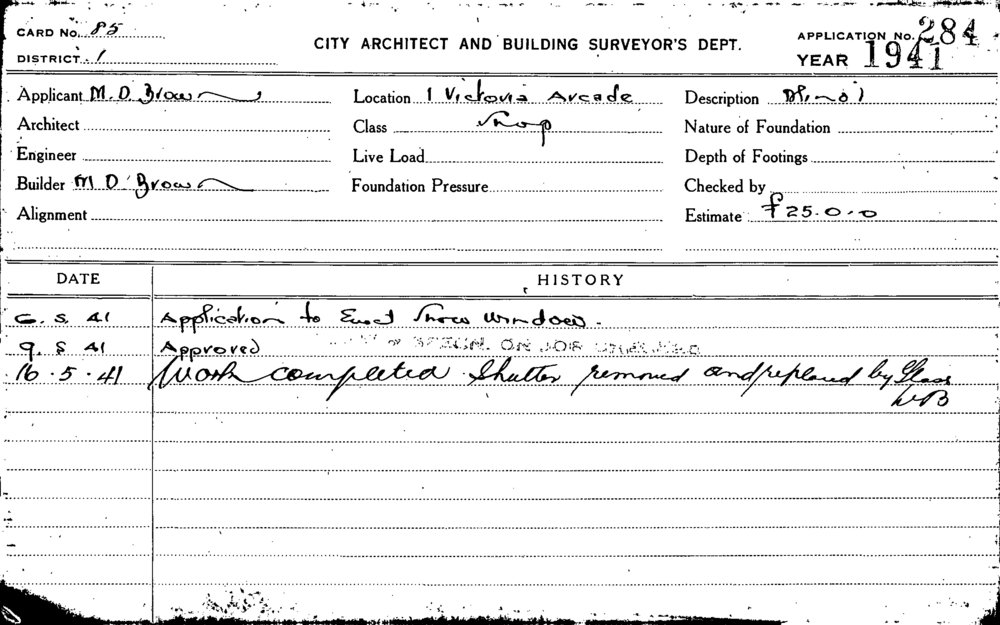 CARD No. 85
CITY ARCHITECT AND BUILDING SURVEYOR'S DEPT.
APPLICATION No. 284
DISTRICT 1
YEAR 1941
Applicant M. D. Brown
Location 1 Victoria Arcade
Description
Architect
Class Shop
Nature of Foundation
Engineer
Live Load
Depth of Footings
Builder M D. Brown
Foundation Pressure
Checked by
Alignment
Estimate £25.0.0
DATE HISTORY
6. 5. 41 Application to Erect Show Window.
9. 5 41 Approved SPECN. ON JOB
16.5.41 Work completed Shutter removed and replaced by Glass
WB